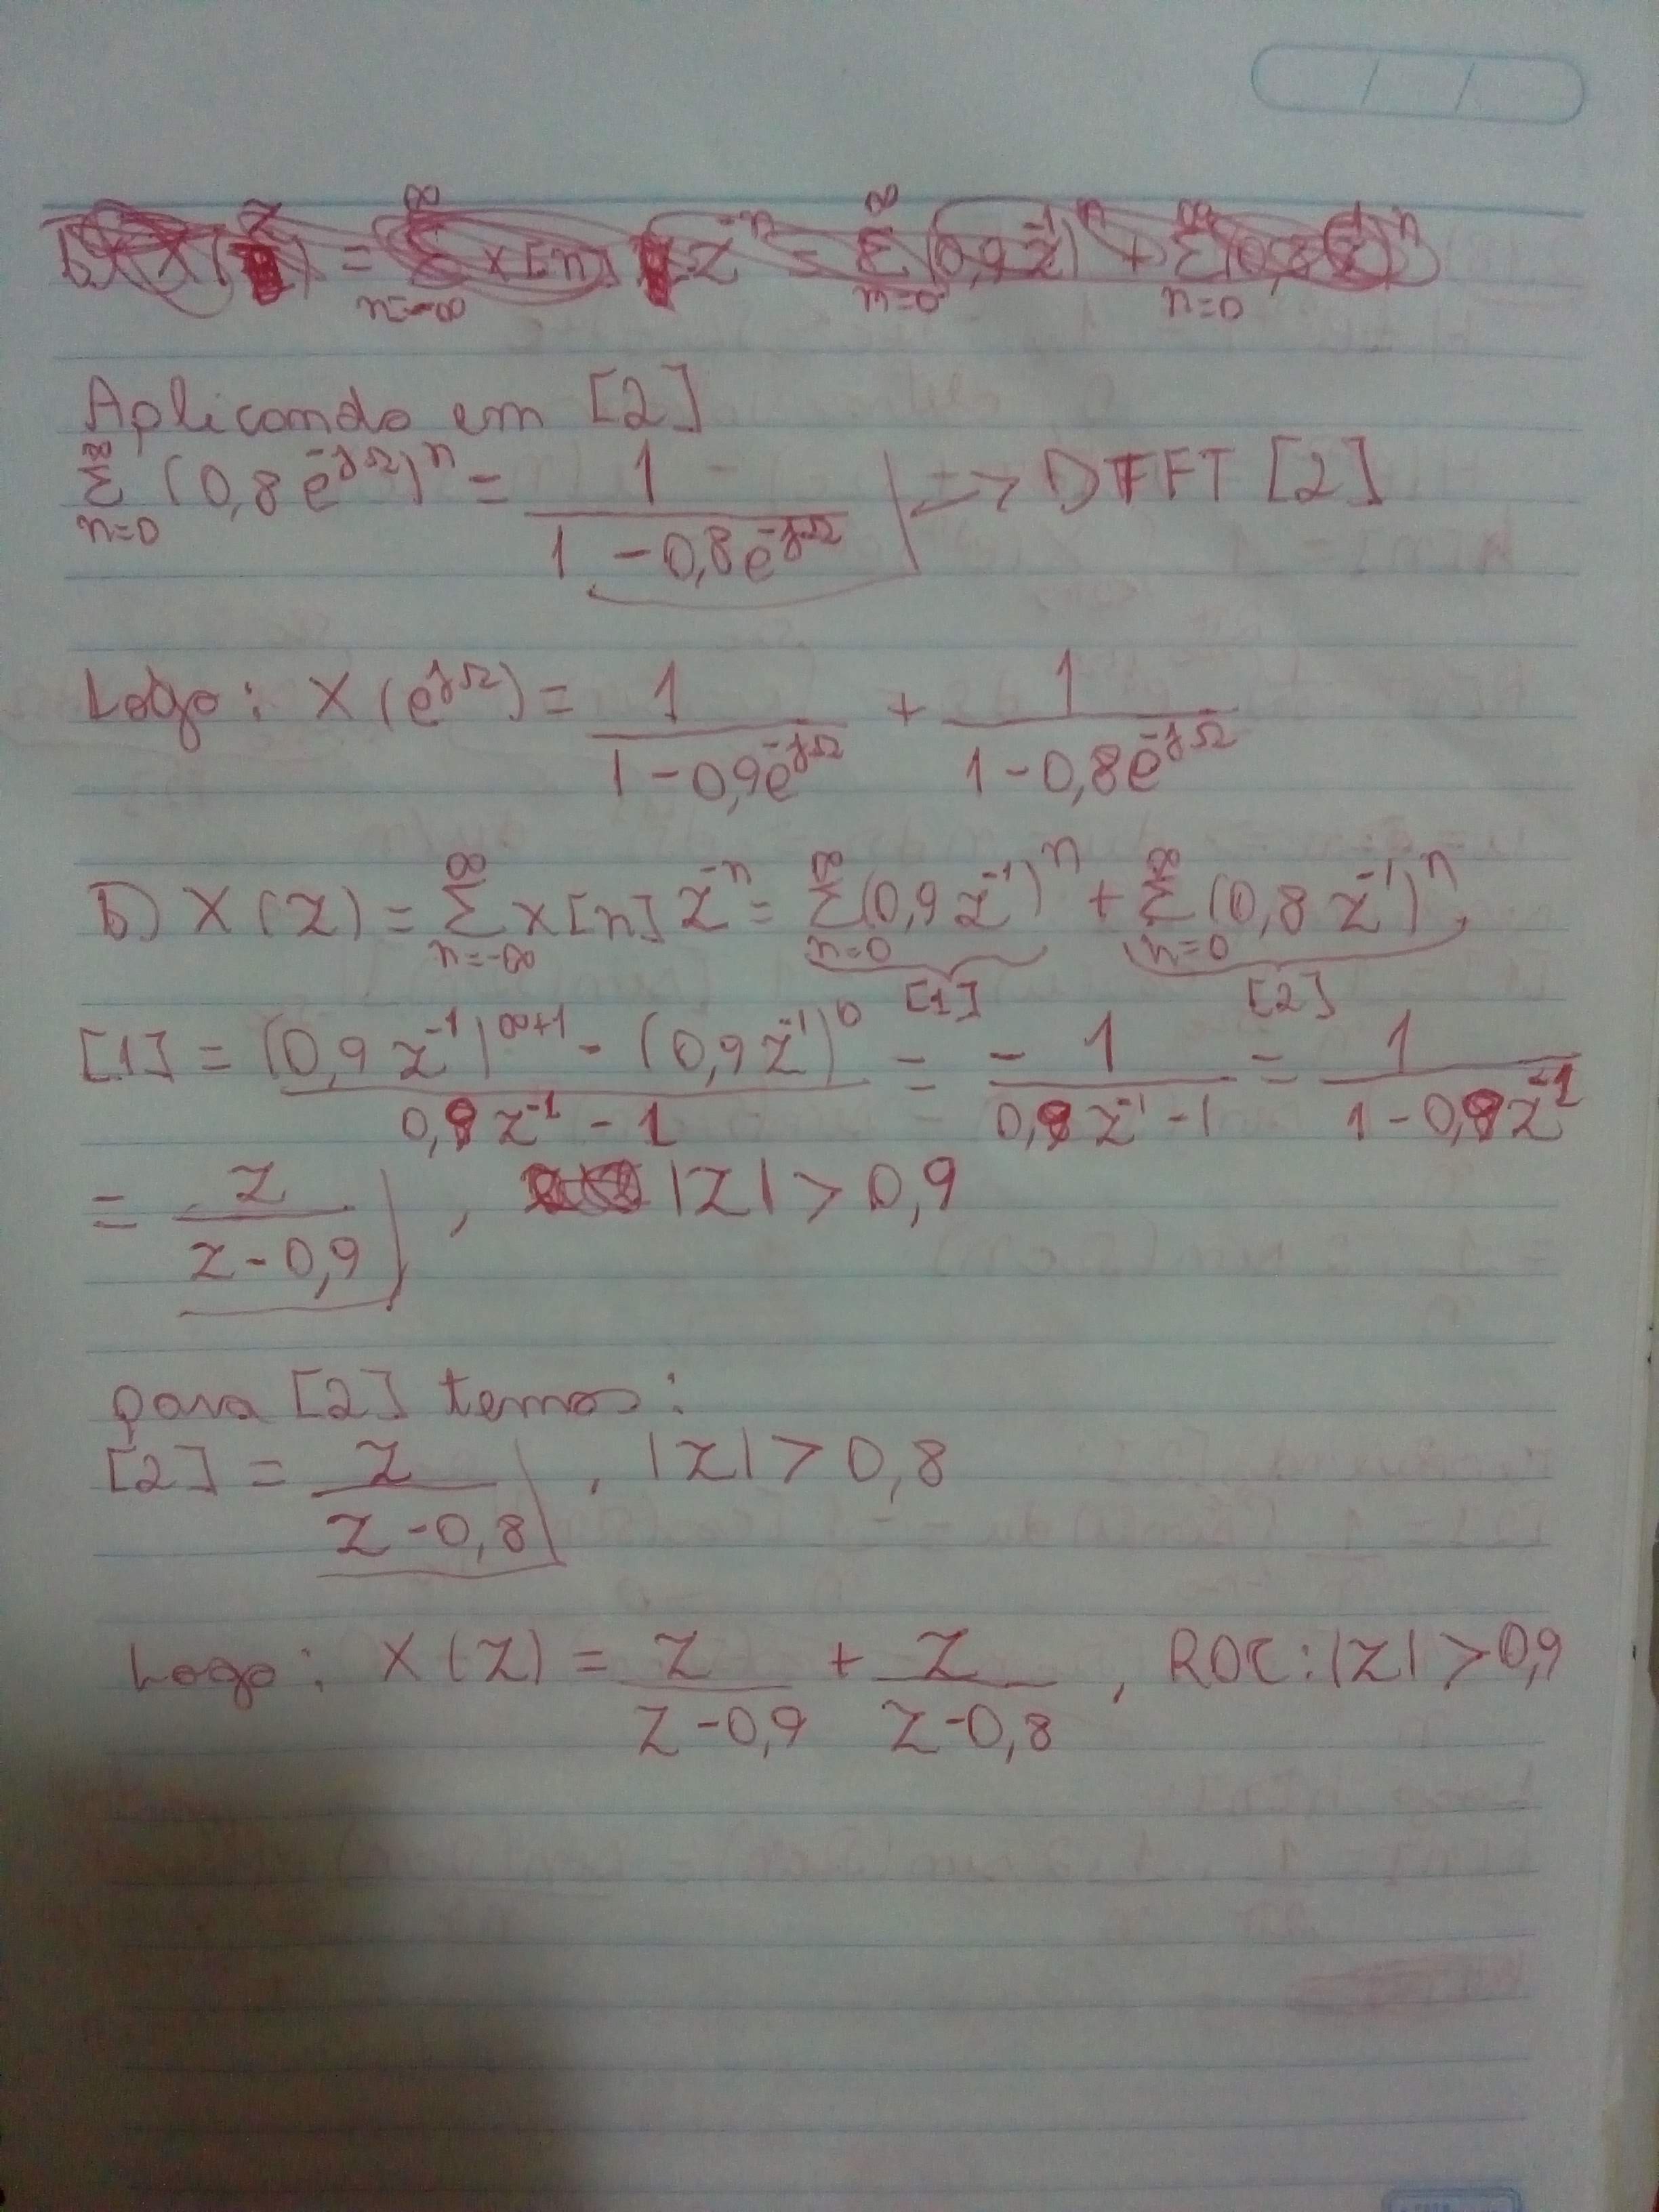 b) X(z) = ∞Σn=-∞ x[n] z^-n = ∞Σn=0 (0,9 z^-1)^n + ∞Σn=0 (0,8 z^-1)^n
Aplicando em [2]
∞Σn=0 (0,8 e^-jΩ)^n = 1/(1 - 0,8e^-jΩ) -> DTFT [2]
Logo: X(e^jΩ) = 1/(1 - 0,9e^-jΩ) + 1/(1 - 0,8e^-jΩ)
b) X(z) = ∞Σn=-∞ x[n] z^-n = ∞Σn=0 (0,9 z^-1)^n + ∞Σn=0 (0,8 z^-1)^n,
[1] [2]
[1] = ((0,9 z^-1)^(∞+1) - (0,9 z^-1)^0)/(0,9 z^-1 - 1) = - 1/(0,9 z^-1 - 1) = 1/(1 - 0,9 z^-1)
= z/(z - 0,9) , |z| > 0,9
para [2] temos:
[2] = z/(z - 0,8) , |z| > 0,8
Logo: X(z) = z/(z - 0,9) + z/(z - 0,8) , ROC: |z| > 0,9